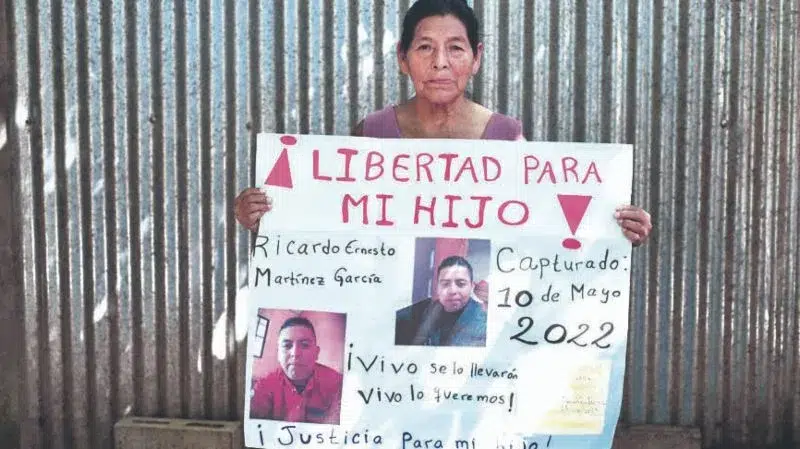 ¡ LIBERTAD PARA
MI HIJO !
Ricardo Ernesto
Martínez García
Capturado:
10 de Mayo
2022
¡Vivo se lo llevarón
Vivo lo queremos!
¡Justicia Para mi hijo!